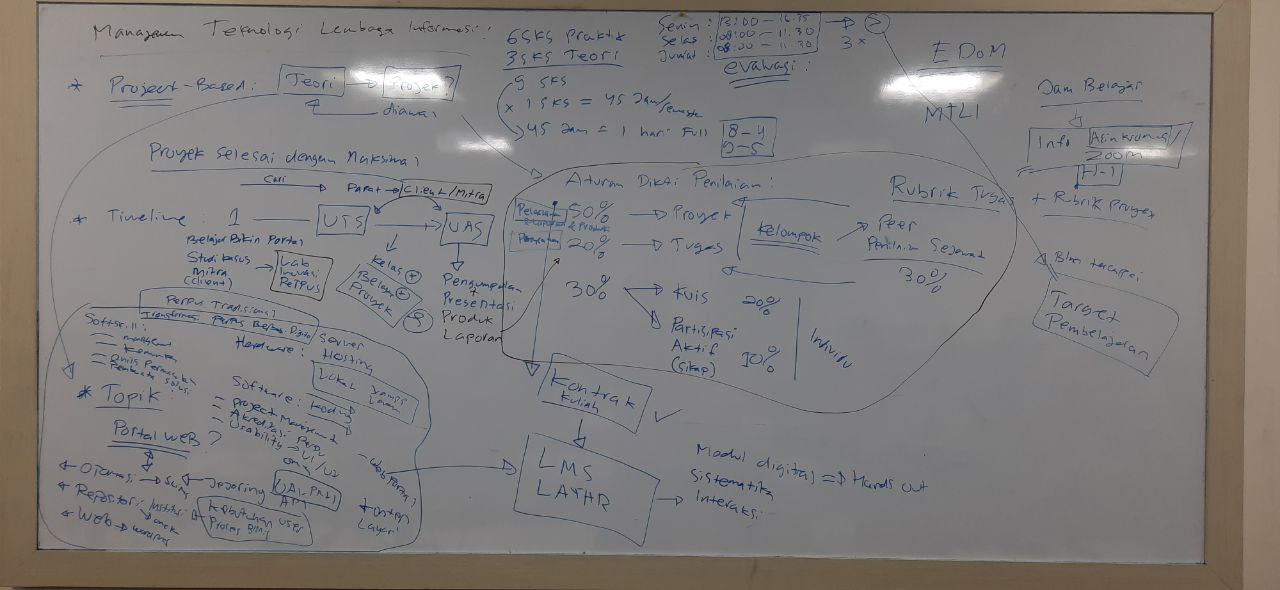 Manajemen Teknologi Lembaga Informasi:
6 SKS Praktik
3 SKS Teori
9 SKS
× 1 SKS = 45 Jam/semester
45 Jam = 1 hari Full
8 - 4
9 - 5
Senin : 13:00 -
Selas : 08:00 - 11.30
Jumat : 08:00 - 11.30
3 x
evaluasi :
EDOM
MTLI
Jam Belajar
Info Asinkronus/
zoom
H-1
+ Rubrik Proyek
* Project-Based : Teori Proyek ?
diawal
Proyek selesai dengan Maksimal
Cari
Client/Mitra
* Timeline : 1 UTS UAS
Belajar Bikin Portal
Studi kasus
Mitra
(Client)
Lab
Inovasi
Perpus
Kelas +
Belajar +
Proyek
Pengumpulan
+
Presentasi
Produk
Laporan
Aturan Dikti Penilaian :
50% Proyek
20% Tugas
30% Kuis 20%
Partisipasi
Aktif
(sikap) 10%
Kelompok
Individu
Rubrik Tugas
Peer
Penilaian Sejawat
30%
Blm tercapai
Target
Pembelajaran
Perpus Tradisional
Transformasi Perpus Berbasis Digital
Softskill :
Hardware :
Server
Hosting
Lokal
Software : Koding
- Project Management
- Akreditasi Perpu
- Usability UI/UX
* Topik :
Portal Web ?
Otomasi Slims
Jejaring
Repositori Institusi
Web
API
Kebutuhan User
- Web Portal
Konten
Kontrak
Kuliah
LMS
LAYAR
Modul digital Hands out
Sistematika
Interaksi